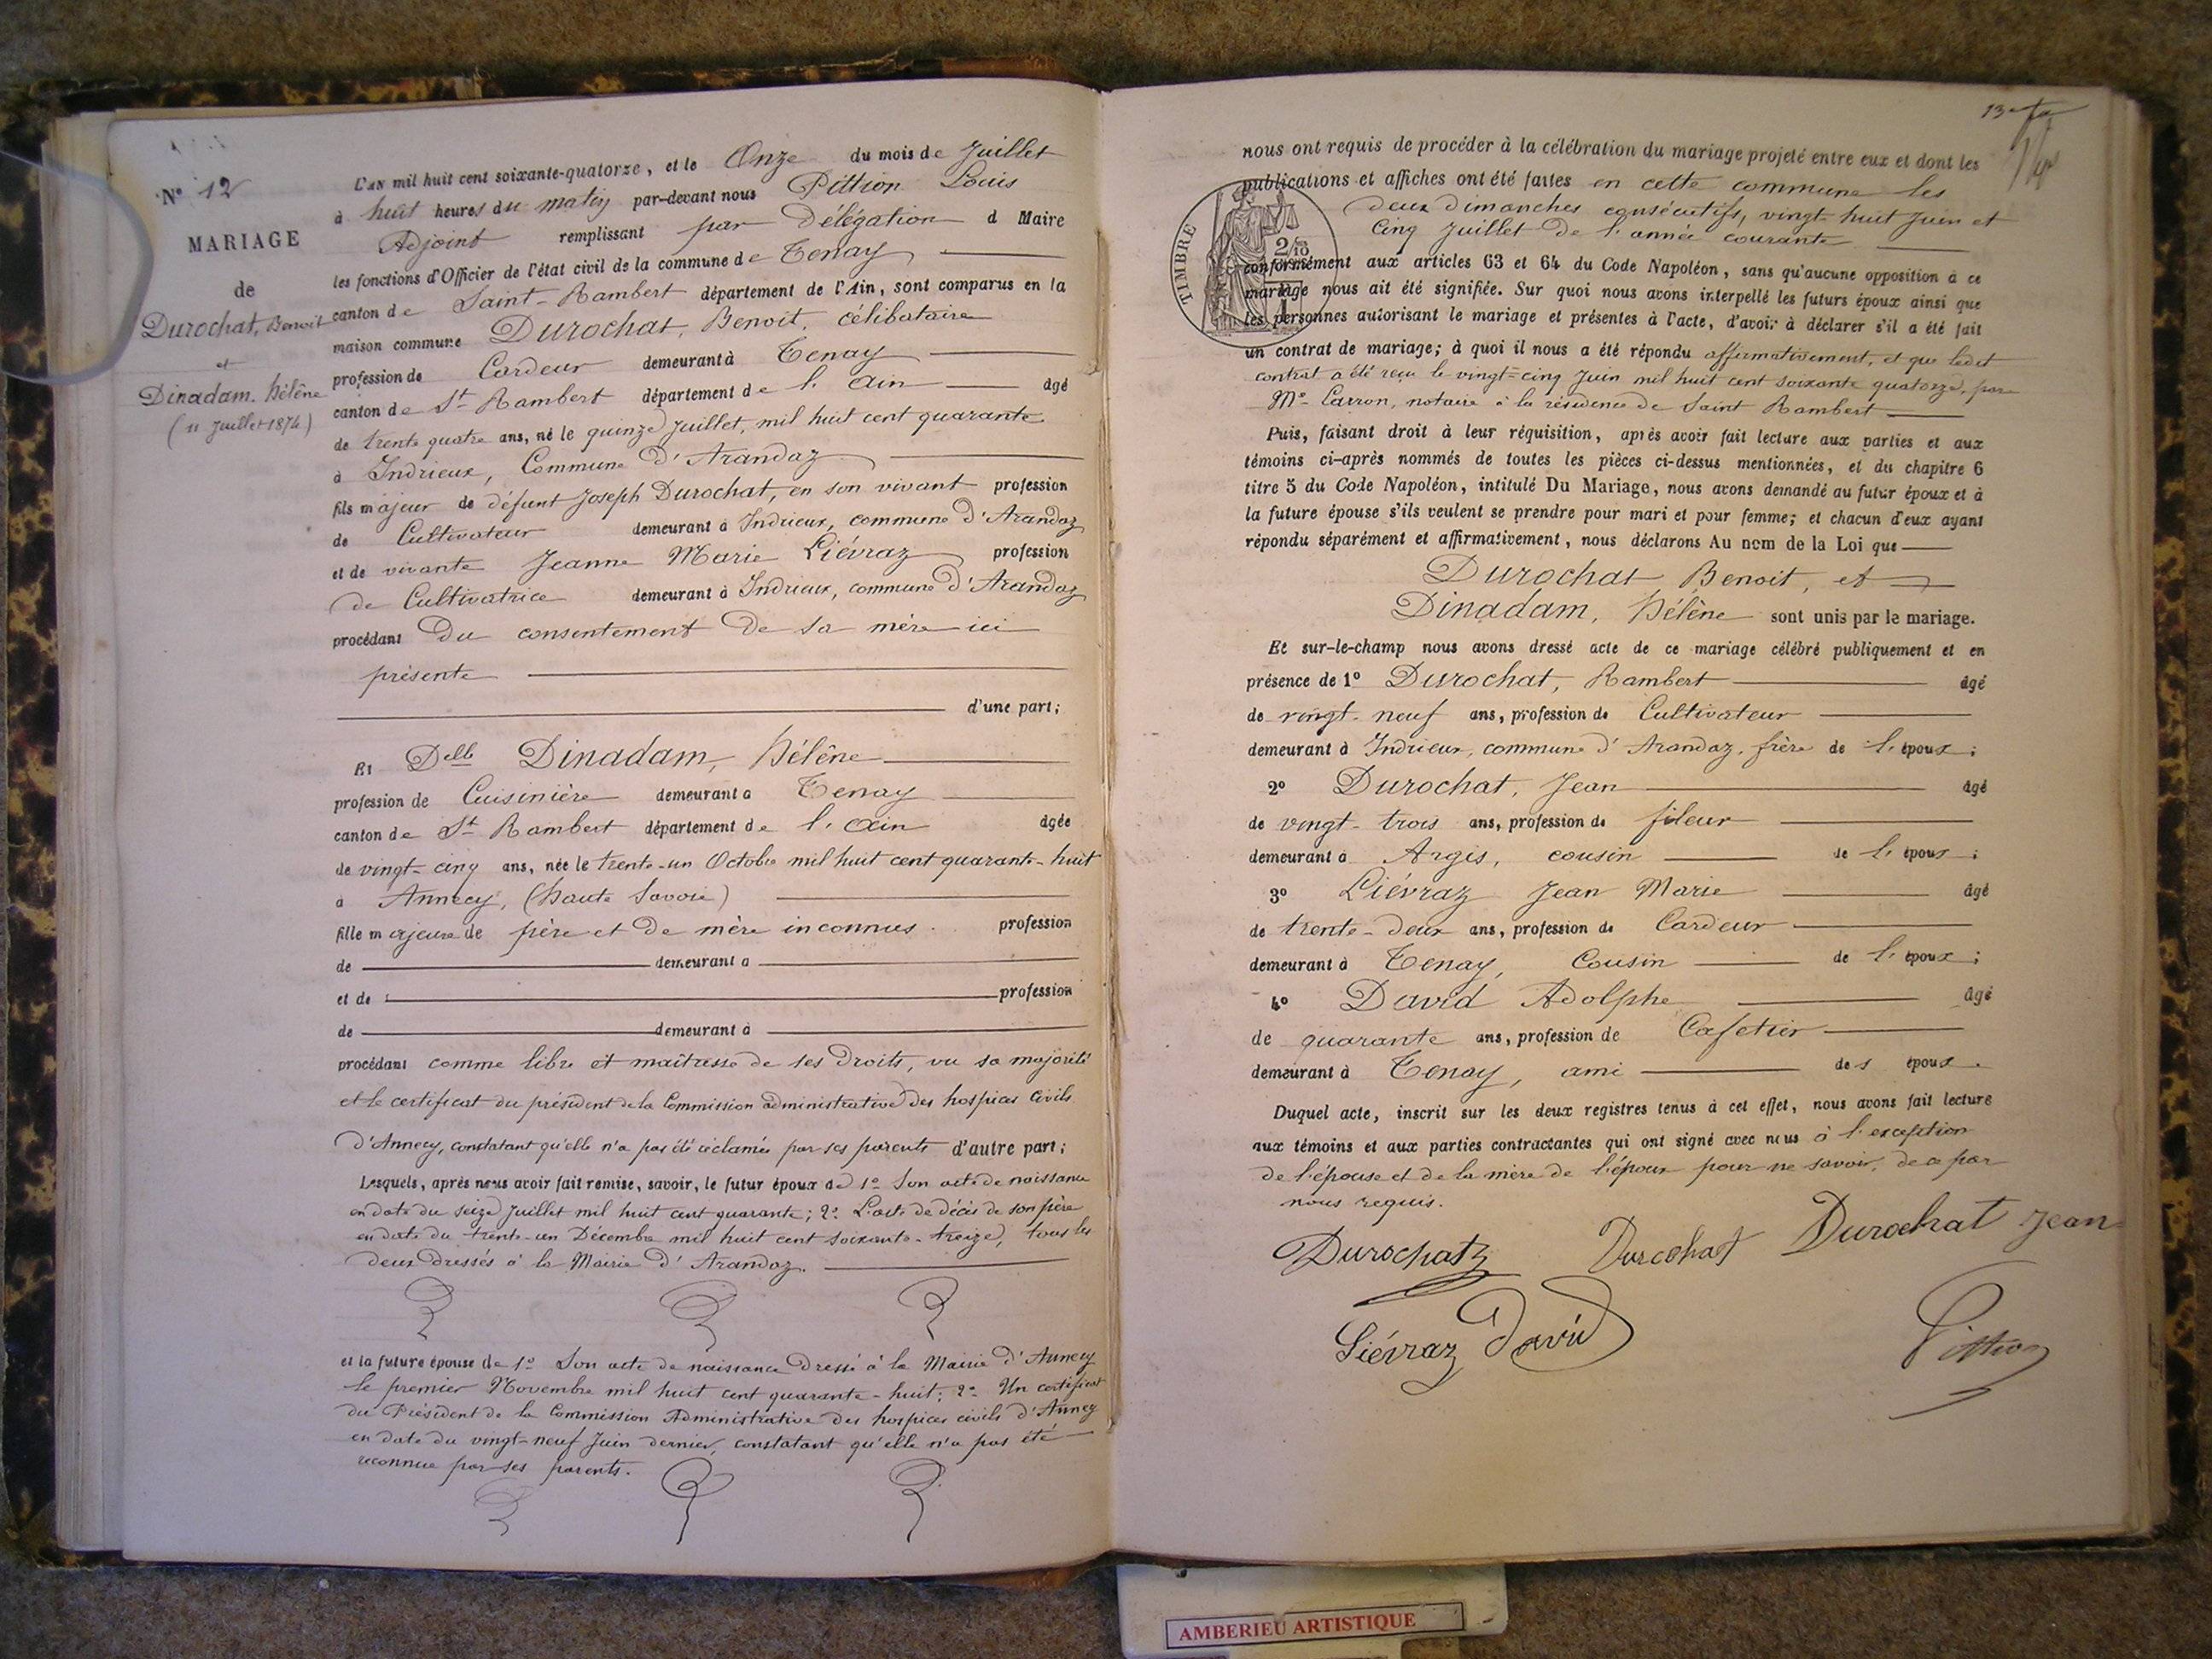 N° 12
MARIAGE
de
Durochat, Benoit
et
Dinadam. Hélène
(11 Juillet 1874)
L'an mil huit cent soixante-quatorze, et le Onze du mois de Juillet
à huit heures du matin par-devant nous Pittion Louis
Adjoint remplissant par Délégation d Maire
les fonctions d'Officier de l'état civil de la commune de Tenay
canton de Saint-Rambert département de l'Ain, sont comparus en la
maison commune Durochat, Benoit, célibataire
profession de Cardeur demeurant à Tenay
canton de St Rambert département de l'Ain âgé
de trente quatre ans, né le quinze Juillet, mil huit cent quarante
à Indrieux, Commune d'Arandaz
fils majeur de défunt Joseph Durochat, en son vivant profession
de Cultivateur demeurant à Indrieux, commune d'Arandaz
et de vivante Jeanne Marie Liévraz profession
de Cultivatrice demeurant à Indrieux, commune d'Arandaz
procédant Du consentement De sa mère ici
présente
d'une part;
Et Delle Dinadam, Hélène
profession de Cuisinière demeurant à Tenay
canton de St Rambert département de l'Ain âgée
de vingt-cinq ans, née le trente-un Octobre mil huit cent quarante-huit
à Annecy, (Haute Savoie)
fille majeure de père et De mère inconnus. profession
de demeurant à
et de profession
de demeurant à
procédant comme libre et maîtresse de ses Droits, vu sa majorité
et le certificat du président de la Commission administrative des hospices Civils
d'Annecy, constatant qu'elle n'a pas été réclamée par ses parents d'autre part;
Lesquels, après nous avoir fait remise, savoir, le futur époux de 1° Son acte de naissance
en date du seize Juillet mil huit cent quarante; 2° L'acte de décès de son père
en date du trente-un Décembre mil huit cent soixante-treize, tous les
deux dressés à la Mairie d'Arandaz.
et la future épouse de 1° Son acte de naissance Dressé à la Mairie d'Annecy
le premier Novembre mil huit cent quarante-huit; 2° Un certificat
du Président de la Commission Administrative des hospices civils d'Annecy
en date du vingt-neuf Juin dernier, constatant qu'elle n'a pas été
reconnue par ses parents.
nous ont requis de procéder à la célébration du mariage projeté entre eux et dont les
publications et affiches ont été faites en cette commune les
deux Dimanches consécutifs, vingt-huit Juin et
Cinq Juillet De l'année courante
TIMBRE
2/10
conformément aux articles 63 et 64 du Code Napoléon, sans qu'aucune opposition à ce
mariage nous ait été signifiée. Sur quoi nous avons interpellé les futurs époux ainsi que
les personnes autorisant le mariage et présentes à l'acte, d'avoir à déclarer s'il a été fait
un contrat de mariage; à quoi il nous a été répondu affirmativement, et que ledit
contrat a été reçu le vingt-cinq Juin mil huit cent soixante quatorze, par
Me Carron, notaire à la résidence de Saint Rambert
Puis, faisant droit à leur réquisition, après avoir fait lecture aux parties et aux
témoins ci-après nommés de toutes les pièces ci-dessus mentionnées, et du chapitre 6
titre 5 du Code Napoléon, intitulé Du Mariage, nous avons demandé au futur époux et à
la future épouse s'ils veulent se prendre pour mari et pour femme; et chacun d'eux ayant
répondu séparément et affirmativement, nous déclarons Au nom de la Loi que
Durochat Benoit, et
Dinadam, Hélène sont unis par le mariage.
Et sur-le-champ nous avons dressé acte de ce mariage célébré publiquement et en
présence de 1° Durochat, Rambert âgé
de vingt-neuf ans, profession de Cultivateur
demeurant à Indrieux, commune d'Arandaz, frère de l'époux;
2° Durochat, Jean âgé
de vingt-trois ans, profession de fileur
demeurant à Argis, cousin de l'époux;
3° Liévraz Jean Marie âgé
de trente-deux ans, profession de Cardeur
demeurant à Tenay, Cousin de l'époux;
4° David Adolphe âgé
de quarante ans, profession de Cafetier
demeurant à Tenay, ami des époux.
Duquel acte, inscrit sur les deux registres tenus à cet effet, nous avons fait lecture
aux témoins et aux parties contractantes qui ont signé avec nous à l'exception
de l'épouse et de la mère de l'époux pour ne savoir, de ce par
nous requis.
Durochatz Durochat Durochat Jean
Liévraz David Pittion
AMBERIEU ARTISTIQUE